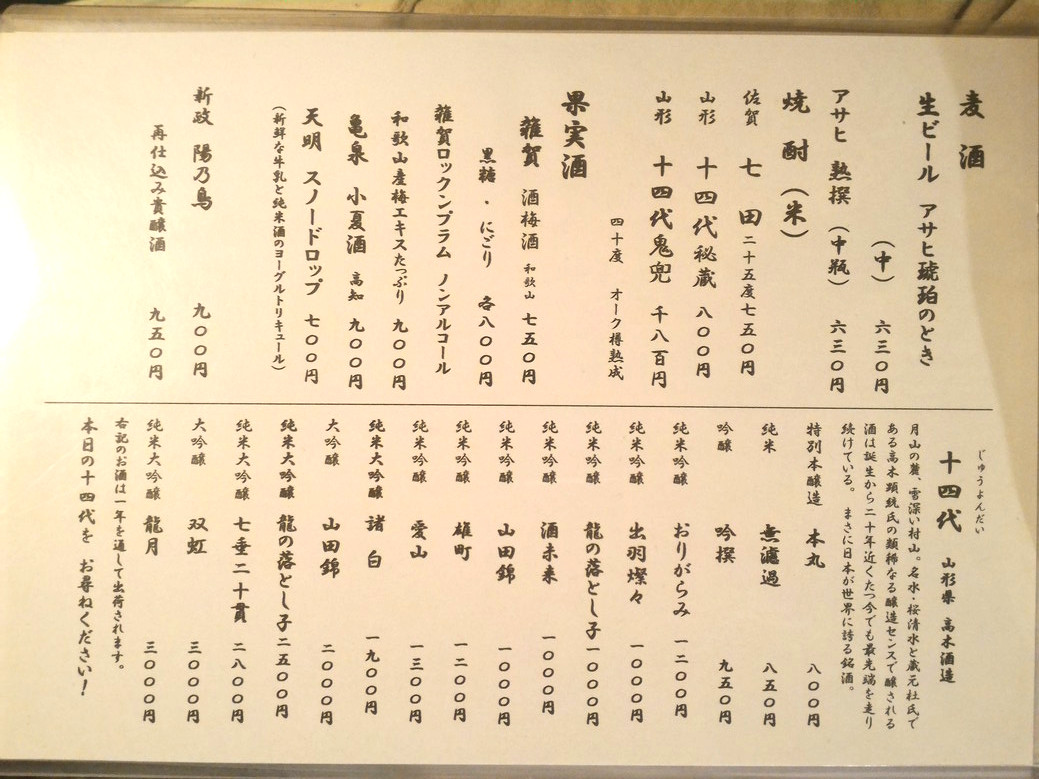 麦酒
生ビール アサヒ琥珀のとき
(中) 六三〇円
アサヒ 熟撰 (中瓶) 六三〇円
焼酎(米)
佐賀 七田 二十五度 七五〇円
山形 十四代秘蔵 八〇〇円
山形 十四代鬼兜 千八百円
四十度 オーク樽熟成
果実酒
雑賀 酒梅酒 和歌山 七五〇円
黒糖・にごり 各八〇〇円
雑賀ロックンプラム ノンアルコール
和歌山産梅エキスたっぷり 九〇〇円
亀泉 小夏酒 高知 九〇〇円
天明 スノードロップ 七〇〇円
(新鮮な牛乳と純米酒のヨーグルトリキュール)
新政 陽乃鳥 九〇〇円
再仕込み貴醸酒 九五〇円
じゅうよんだい
十四代 山形県 高木酒造
月山の麓、雪深い村山。名水・桜清水と蔵元杜氏で
ある高木顕統氏の類稀なる醸造センスで醸される
酒は誕生から二十年近くたつ今でも最先端を走り
続けている。 まさに日本が世界に誇る銘酒。
特別本醸造 本丸 八〇〇円
純米 無濾過 八五〇円
吟醸 吟撰 九五〇円
純米吟醸 おりがらみ 一二〇〇円
純米吟醸 出羽燦々 一〇〇〇円
純米吟醸 龍の落とし子 一〇〇〇円
純米吟醸 酒未来 一〇〇〇円
純米吟醸 山田錦 一〇〇〇円
純米吟醸 雄町 一二〇〇円
純米吟醸 愛山 一三〇〇円
純米大吟醸 諸白 一九〇〇円
大吟醸 山田錦 二〇〇〇円
純米大吟醸 龍の落とし子 二五〇〇円
純米大吟醸 七垂二十貫 二八〇〇円
大吟醸 双虹 三〇〇〇円
純米大吟醸 龍月 三〇〇〇円
右記のお酒は一年を通して出荷されます。
本日の十四代を お尋ねください!